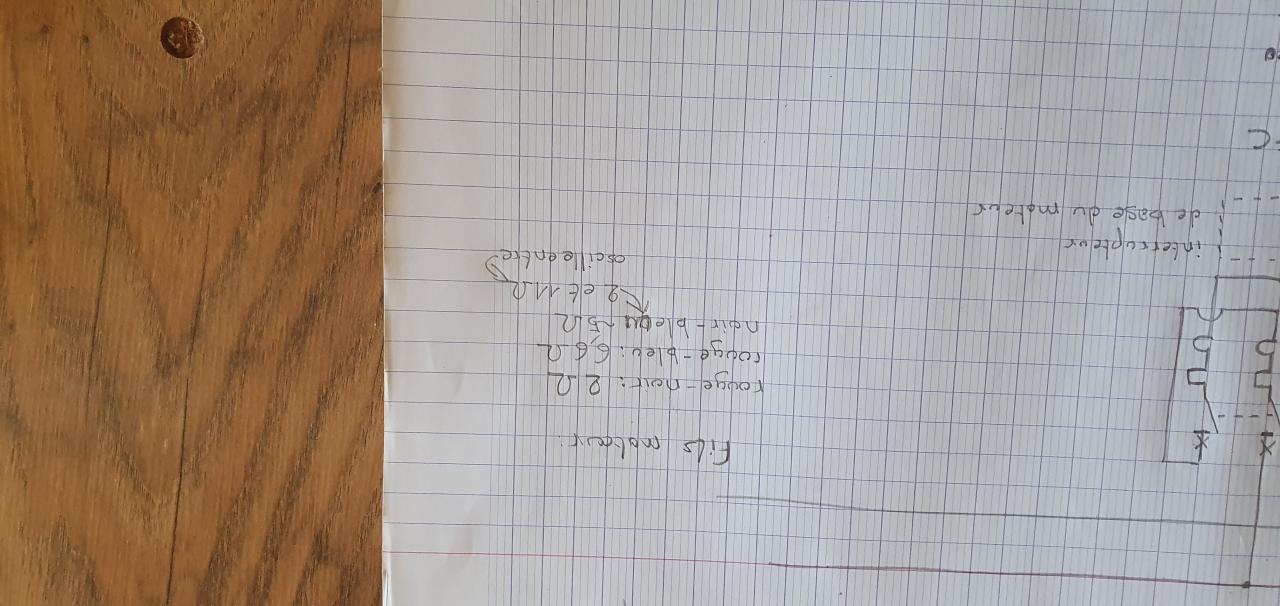 Fils moteur:
rouge-noir: 2 Ω
rouge-bleu: 6,6 Ω
noir-bleu ~5 Ω
2 et 11 Ω
oscille entre
interrupteur
de base du moteur